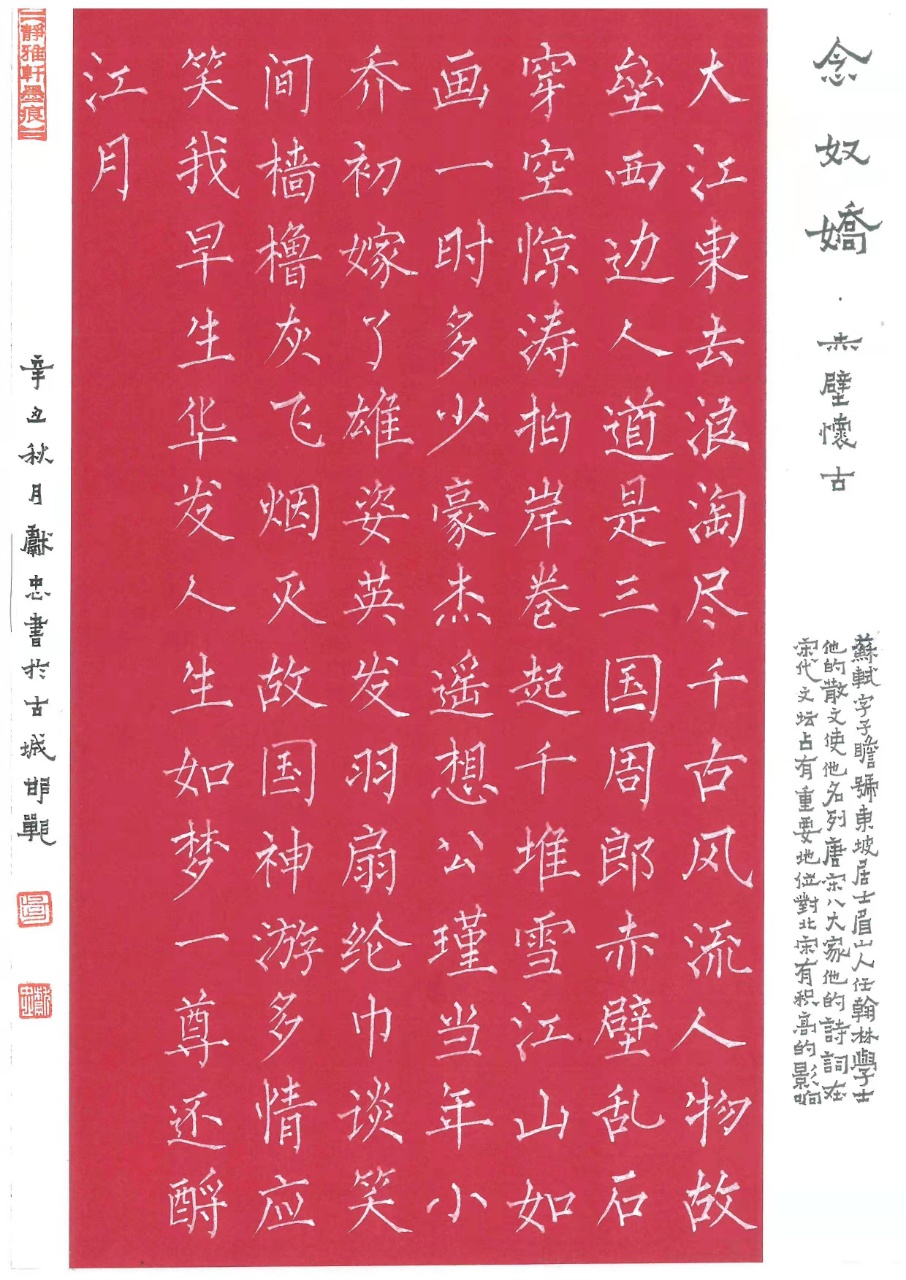 念奴嬌·赤壁懷古
蘇軾字子瞻號東坡居士眉山人任翰林學士
他的散文使他名列唐宋八大家他的詩詞在
宋代文坛占有重要地位對北宋有积高的影响
大江東去浪淘尽千古风流人物故
壘西边人道是三国周郎赤壁乱石
穿空惊涛拍岸卷起千堆雪江山如
画一时多少豪杰遥想公瑾当年小
乔初嫁了雄姿英发羽扇纶巾谈笑
间樯橹灰飞烟灭故国神游多情应
笑我早生华发人生如梦一尊还酹
江月
靜雅軒墨痕
辛丑秋月獻忠書於古城邯鄲